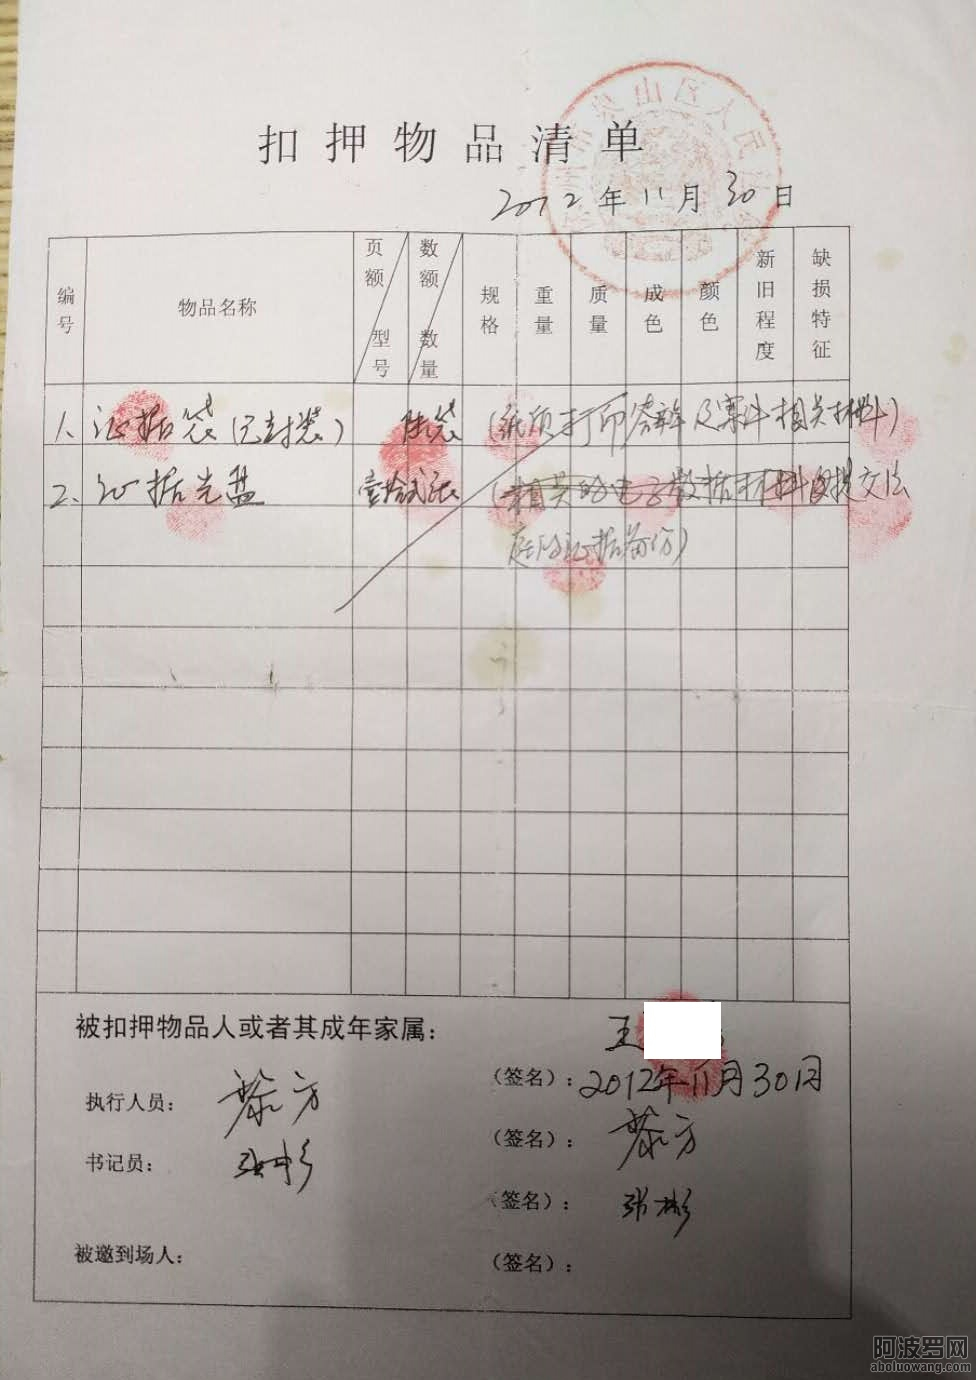 扣押物品清单
2012年11月30日
编号 物品名称 页额 型号 数额 数量 规格 重量 质量 成色 颜色 新旧程度 缺损特征
1、证据袋(已封装) 陆袋 (纸质打印答辩及案件相关材料)
2、证据光盘 壹拾贰张 (相关的电子数据材料及提交法
庭的证据备份)
被扣押物品人或者其成年家属:
王
(签名): 2012年11月30日
执行人员: (签名):
书记员: 张彬 (签名): 张彬
被邀到场人: (签名):
阿波罗网
aboluowang.com